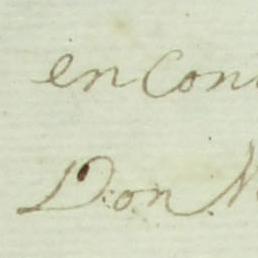 en Con
Don